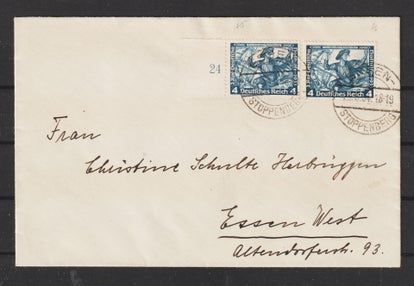 24
4 Deutsches Reich 4
4 Deutsches Reich 4
STOPPENBERG
18-19
STOPPENBERG
Frau
Christine Schulte Herbrüggen
Essen West
Altendorferstr. 93.